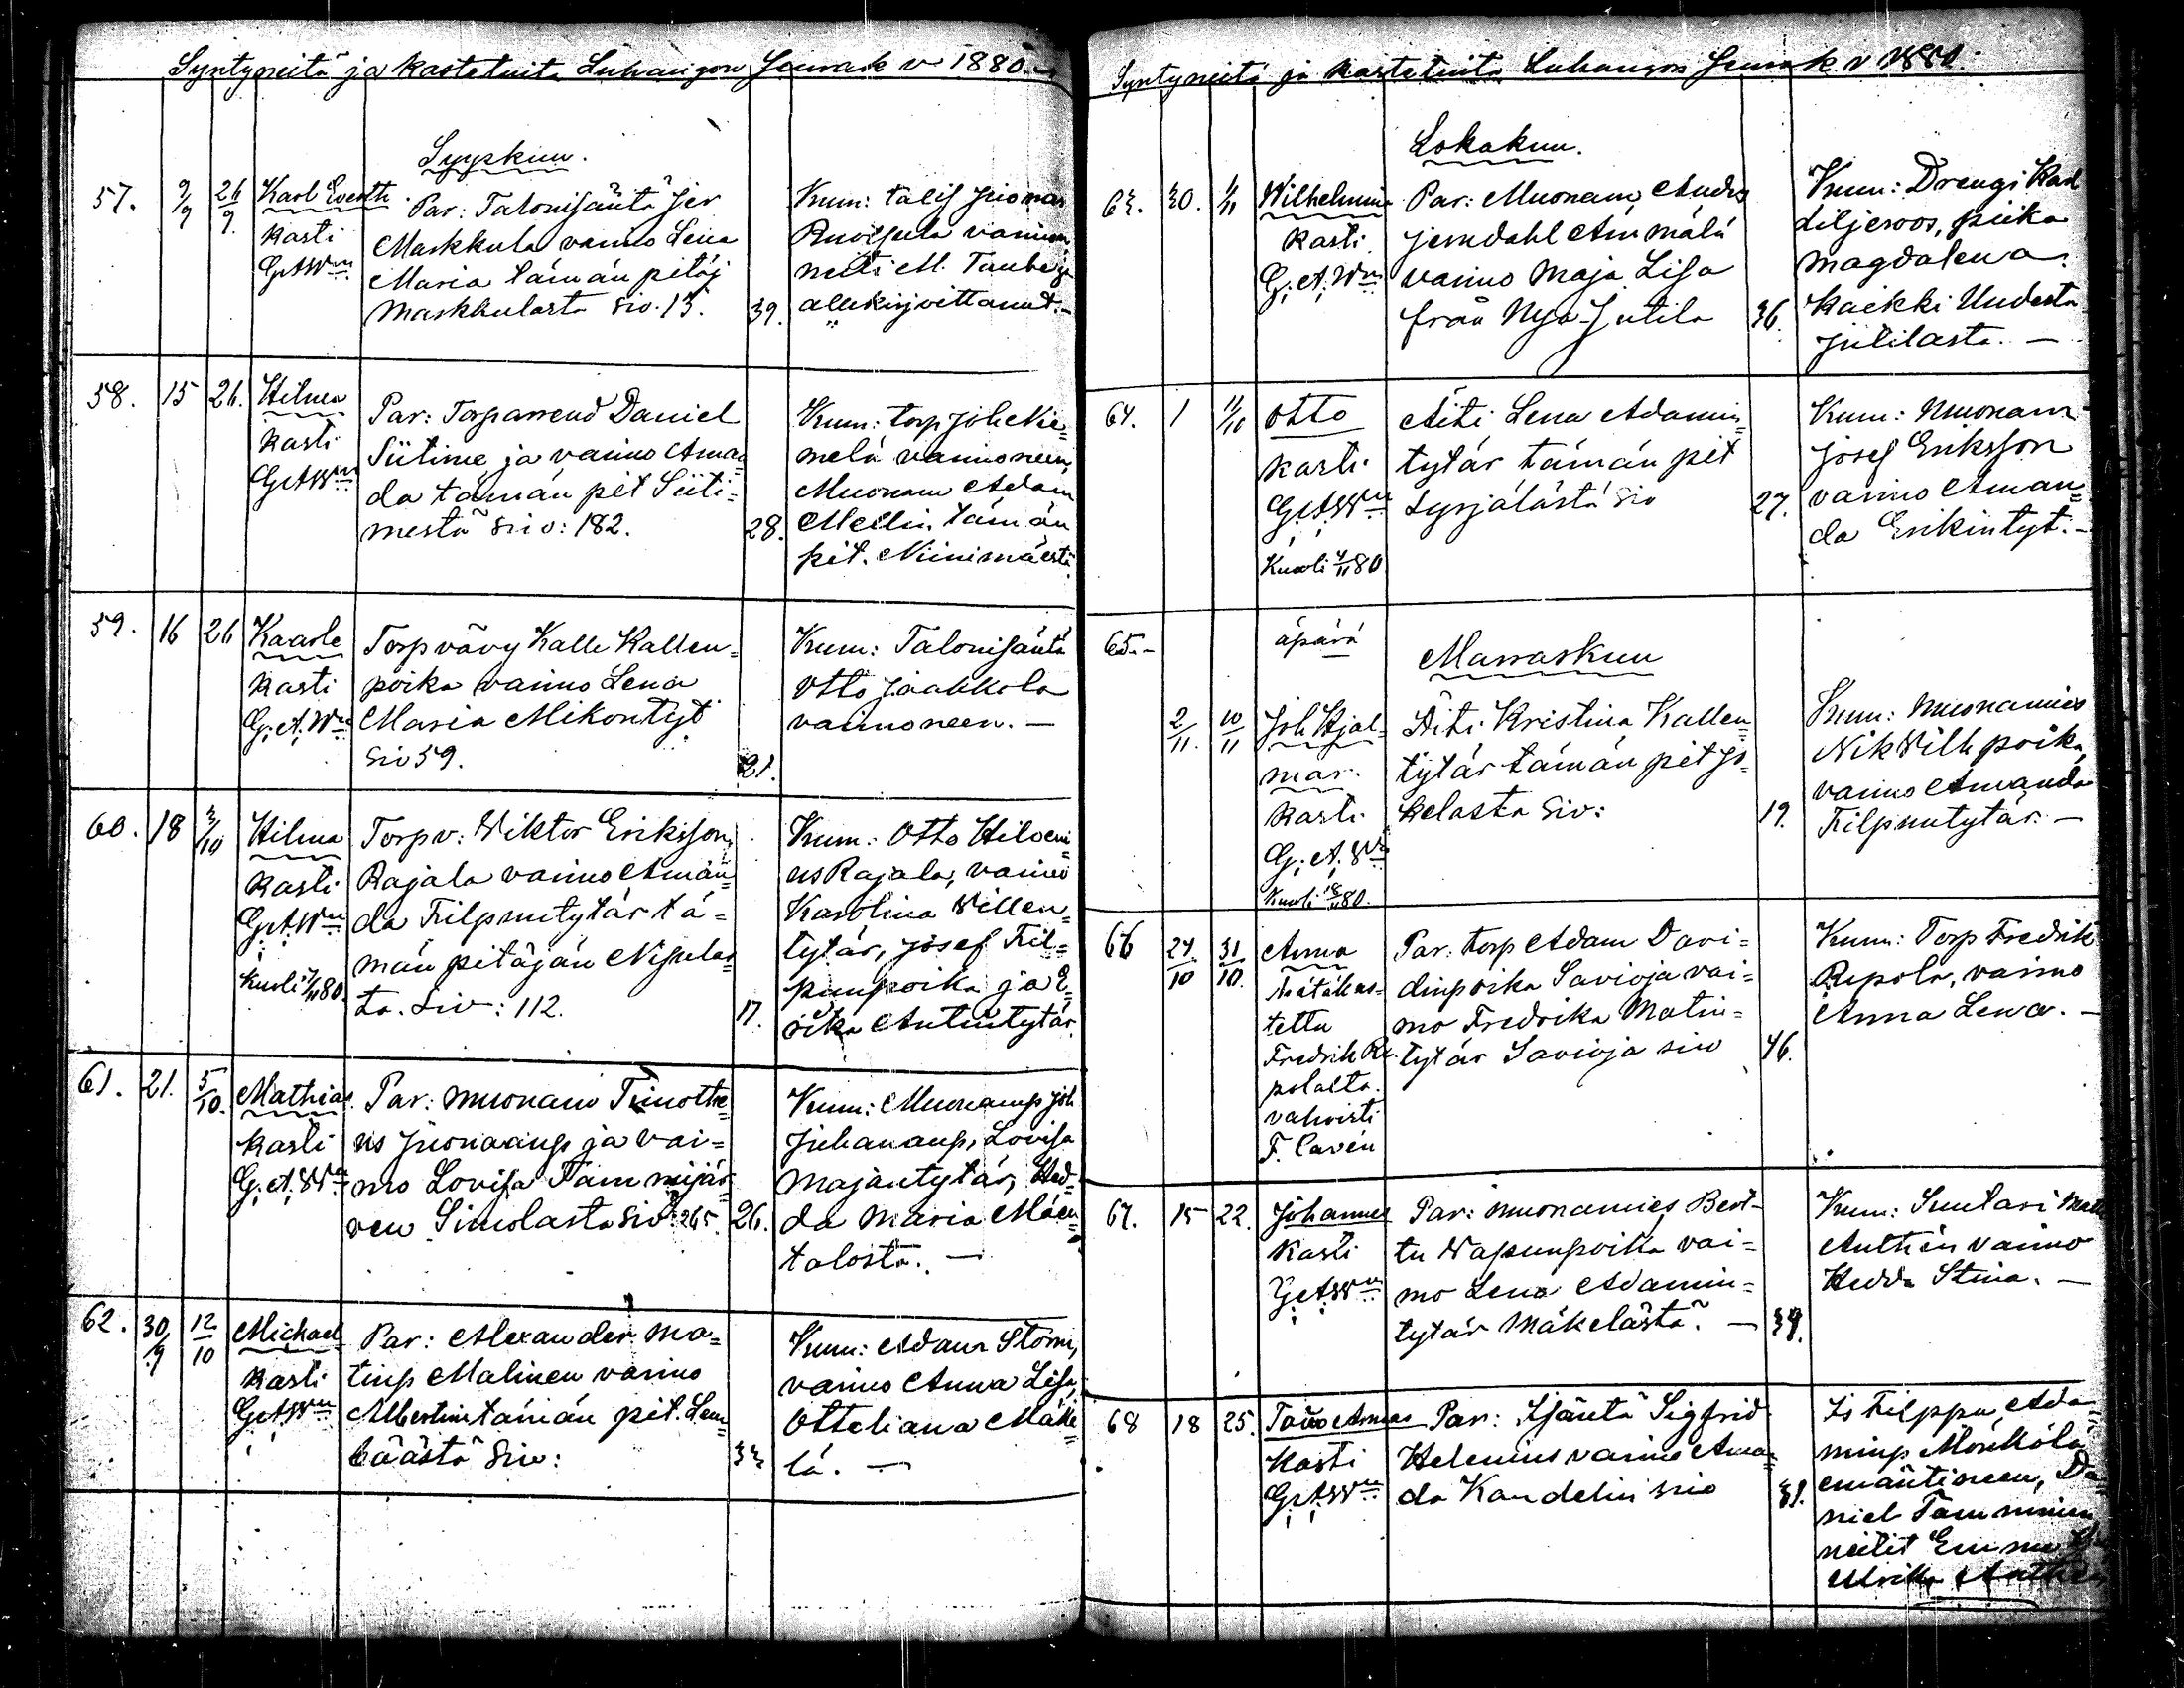 Syntyneitä ja kastetuita Luhangon Seurak v 1880.
Syyskuu.
57. 9/9 26/9. Karl Evertti
kasti
G.A.Wn
Par: Talonisäntä Jer
Markkula vaimo Lena
Maria tämän pitäj
Markkulasta siv. 13. 39.
Kum: talis
Ruolsula
neiti M. Taube ja
allekirjoittanut.-
58. 15 26. Hilma
kasti
G.A.Wn
Par: Torparrend Daniel
Siitime ja vaimo Aman=
da tämän pit Siiti=
mestä siv: 182. 28.
Kum: torp joh Nie=
melä vaimoneen,
Muonam Adam
Mellin tämän
pit. Niinimäestä
59. 16 26 Kaarle
kasti
G.A.Wn
Torp vävy Kalle Kallen=
poika vaimo Lena
Maria Mikontyt
siv 59. 21.
Kum: Talonisäntä
Otto Jaakkola
vaimoneen. —
60. 18 3/10 Hilma
kasti
G.A.Wn
Kuoli 80
Torp v: Wiktor Eriksson
Rajala vaimo Aman=
da Filpuntytär tä=
män pitäjän Nisulas=
ta. Siv: 112. 17.
Kum: Otto Hiloeni=
us Rajala, vaimo
Karolina Willen=
tytär, Josef Fil=
punpoika ja E=
rika Antintytär.
61. 21. 5/10. Mathias
kasti
G.A.Wn
Par: muonam Timothe=
us Juonaanp ja vai=
mo Lovisa Tammijär=
ven Simolasta siv 265. 26.
Kum: Muonamp joh
Juhananp, Lovisa
Majantytär, Hed=
da Maria Mäen=
talosta. —
62. 30/9 12/10 Michael
kasti
G.A.Wn
Par: Alexander Ma=
tinp Malinen vaimo
Albertina tämän pit. Lem=
bäästä siv: 33
Kum: Adam Storm,
vaimo Anna Lisa,
Otteliana Mäke=
lä. —
Syntyneitä ja kastetuita Luhangon Seurak. v 1880.
Lokakuu.
63. 30. 1/11 Wilhelmina
kasti
G.A.Wn
Par: Muonam Andrs
Jerndahl Ammälä
vaimo Maja Lisa
från Nya-Jutila 36.
Kum: Drengi Karl
Liljeroos, piika
Magdalena.
Kaikki Uudesta
Jutilasta. —
64. 1 11/10 Otto
kasti
G.A.Wn
Kuoli 4/11 80
Äiti Lena Adamin=
tytär tämän pit
Syrjälästä siv 27.
Kum: Muonam
Josef Eriksson
vaimo Aman=
da Erikintyt. -
65.- äpärä
Marraskuu
2/11. 10/11 Joh Hjal=
mar.
kasti
G.A.Wn
Kuoli 18/11 80.
Äiti Kristina Kallen=
tytär tämän pit Jo=
kelasta siv: 19.
Kum: Muonamies
Nik Wilh poika,
vaimo Amanda
Filpuntytär. —
66 24/10 31/10. Anna
hätäkas-
tettu
Fredrik Re=
polalta.
vahvisti
F. Cavén
Par: torp Adam Davi=
dinpoika Savioja vai=
mo Fredrika Matin=
tytär Savioja siv 46.
Kum: Torp Fredrik
Repola, vaimo
Anna Lena. -
67. 15 22. Johannes
kasti
G.A.Wn
Par: muonamies Bert-
tu Wapunpoika vai=
mo Lena Adamin=
tytär Mäkelästä. —
Kum: Suutari Matts
Anthén vaimo
Hedda Stina. —
68 18 25. Toivo Armas
kasti
G.A.Wn
Par: Isäntä Sigfrid
Helenius vaimo Aman=
da Kandelin siv 31.
Is Filppu Ada=
minp Mörkölä
emäntineen, Da=
niel Tamminen
neitit Emma
Ulrika Anthén